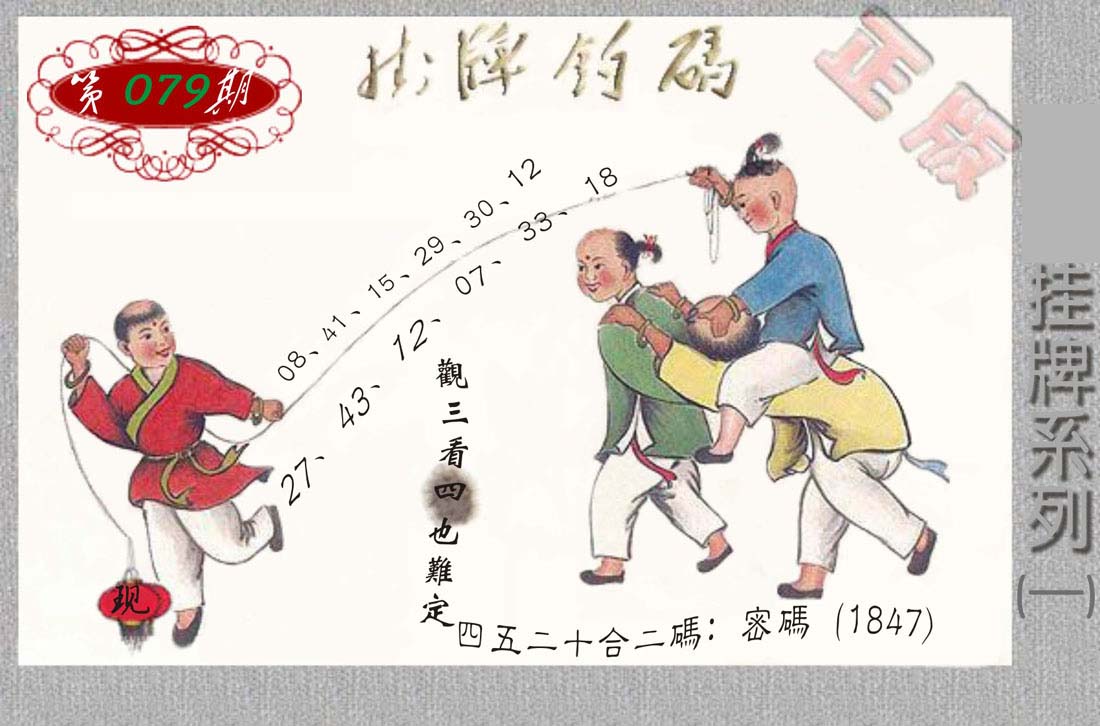 第079期
挂牌钓碼
正版
08、41、15、29、30、12
27、43、12、07、33、18
觀三看四也難定
现
四五二十合二碼：密碼（1847）
挂牌系列(一)